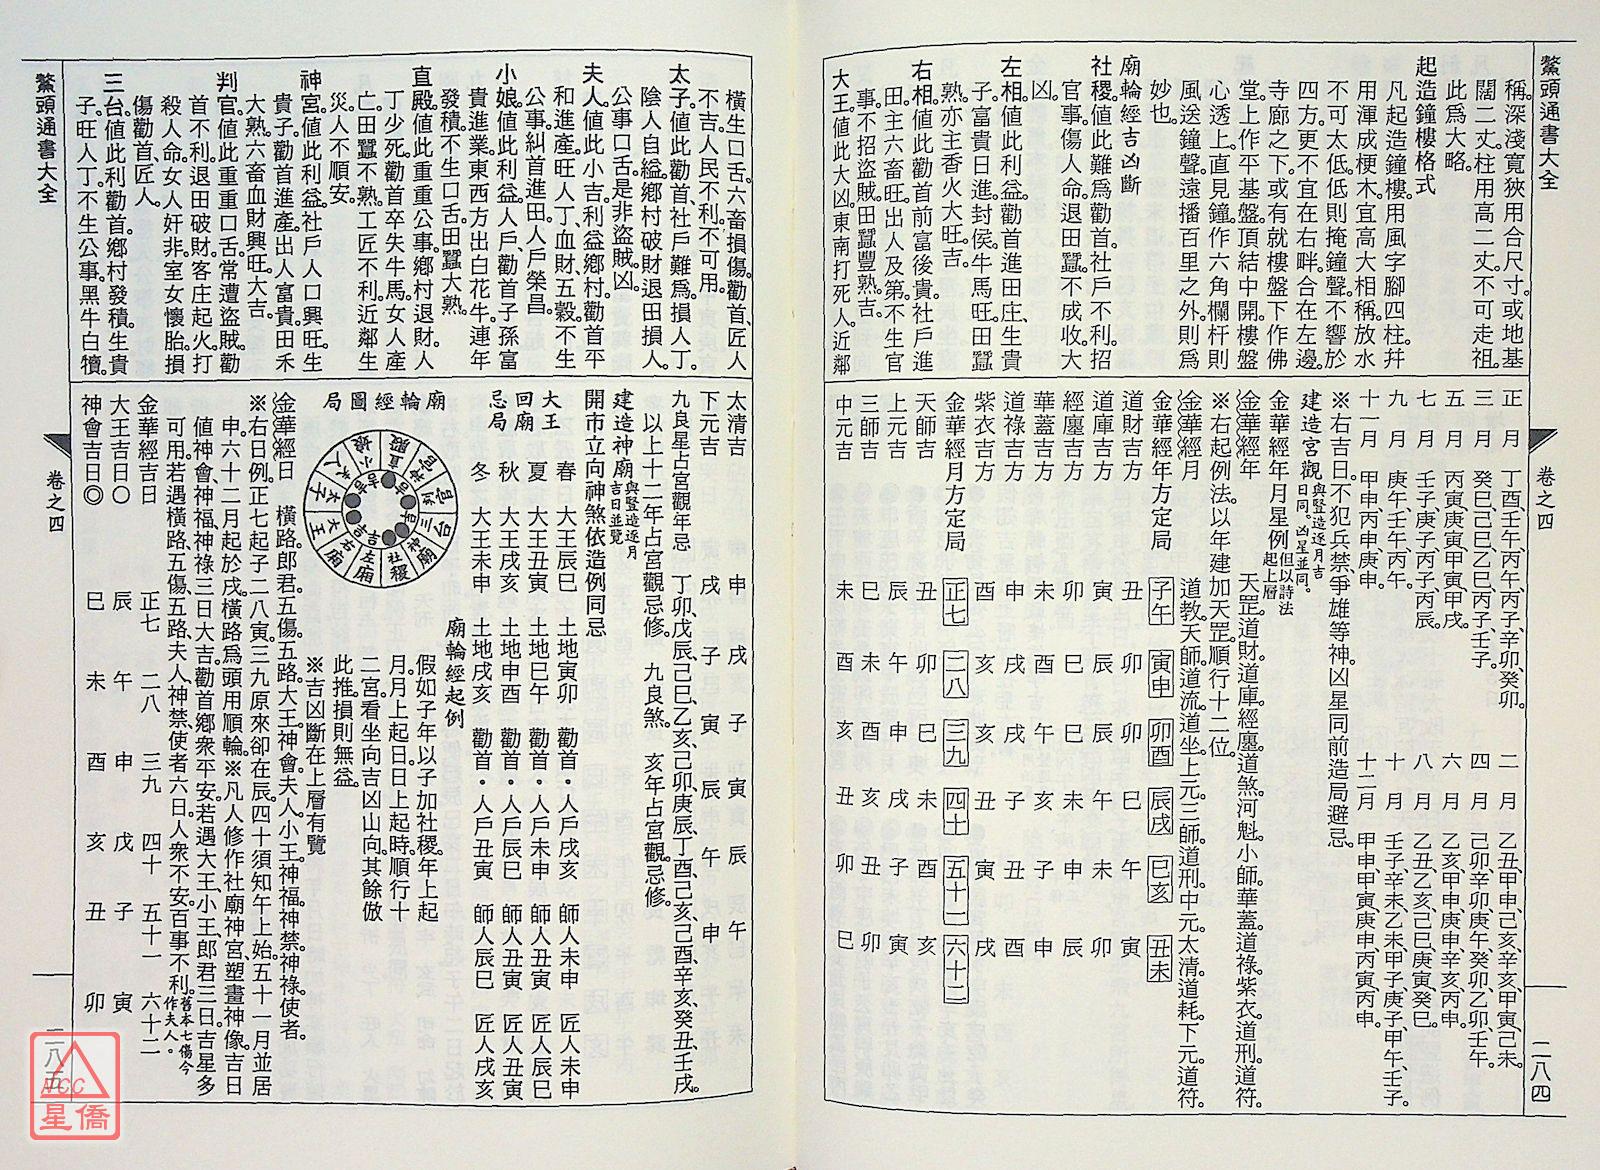 鰲頭通書大全
卷之四
二八四
稱。深淺寬狹用合尺寸。或地基
闊二丈。柱用高二丈。不可走祖。
此爲大略。
起造鐘樓格式
凡起造鐘樓。用風字腳四柱。幷
用渾成梗木。宜高大相稱。放水
不可太低。低則掩鐘聲。不響於
四方。更不宜在右畔。合在左邊。
寺廊之下。或有就樓盤下作佛
堂。上作平基。盤頂結中開樓盤
心透上。直見鐘作六角欄杆。則
風送鐘聲。遠播百里之外。則爲
妙也。
廟輪經吉凶斷
社稷。值此難爲勸首。社戶不利。招
官事。傷人命。退田蠶。不成收。大
凶。
左相。值此利益。勸首進田庄。生貴
子。富貴日進。封侯。牛馬旺。田蠶
熟。亦主香火大旺。吉。
右相。值此勸首前富後貴。社戶進
田。主六畜旺。出人及第。不生官
事。不招盜賊。田蠶豐熟。吉。
大王。值此大凶。東南打死人。近鄰
正月　丁酉、壬午、丙午、丙子、辛卯、癸卯。
二月　乙丑、甲申、己亥、辛亥、甲寅、己未。
三月　癸巳、己巳、乙巳、丙子、壬子。
四月　己卯、辛卯、庚午、癸卯、乙卯、壬午。
五月　丙寅、庚寅、甲寅、甲戌。
六月　乙亥、甲申、庚申、辛亥、丙申。
七月　壬子、庚子、丙子、丙辰。
八月　乙丑、乙亥、己巳、庚寅、癸巳。
九月　庚午、壬午、丙午。
十月　壬子、辛未、乙未、甲子、庚子、甲午、壬子。
十一月　甲申、丙申、庚申。
十二月　甲申、甲寅、庚申、丙寅、丙申。
※右吉日。不犯兵禁、爭雄等神。凶星同前造局避忌。
建造宮觀　與竪造逐月吉日同。凶星並同。
金華經年月星例　但以詩法起上層
金華經年　天罡。道財。道庫。經廛。道煞。河魁。小師。華蓋。道祿。紫衣。道刑。道符。
※右起例法。以年建加天罡順行十二位。
金華經月　道教。天師。道流。道坐。上元。三師。道刑。中元。太清。道耗。下元。道符。
金華經年方定局　子午　寅申　卯酉　辰戌　巳亥　丑未
道財吉方　丑　卯　卯　巳　午　寅
道庫吉方　寅　辰　辰　午　未　卯
經廛吉方　卯　巳　巳　未　申　辰
華蓋吉方　未　酉　午　亥　子　申
道祿吉方　申　戌　戌　子　丑　酉
紫衣吉方　酉　亥　亥　丑　寅　戌
金華經月方定局　正七　二八　三九　四十　五十一　六十二
天師吉　丑　卯　巳　未　酉　亥
上元吉　辰　午　申　戌　子　寅
三師吉　巳　未　酉　亥　丑　卯
中元吉　未　酉　亥　丑　卯　巳
橫生口舌。六畜損傷。勸首、匠人
不吉。人民不利。不可用。
太子。值此勸首、社戶難爲。損人丁。
陰人自縊。鄉村破財。退田損人。
公事口舌。是非盜賊。凶。
夫人。值此小吉。利益鄉村。勸首平
和。進產旺人丁。血財、五穀不生
公事。糾首進田。人戶榮昌。
小娘。值此利益人戶。勸首子孫富
貴。進業東西方。出白花牛。連年
發積。不生口舌。田蠶大熟。
直殿。值此重重公事。鄉村退財。人
丁少死。勸首卒失。牛馬女人產
亡。田蠶不熟。工匠不利。近鄰生
災。人不順安。
神宮。值此利益。社戶人口興旺。生
貴子。勸首進產。出人富貴。田禾
大熟。六畜血財興旺。大吉。
判官。值此重重口舌。常遭盜賊。勸
首不利。退田破財。客庄起火。打
殺人命。女人奸非。室女懷胎。損
傷勸首匠人。
三台。值此利勸首。鄉村發積。生貴
子。旺人丁。不生公事。黑牛白犢。
太清吉　申　戌　子　寅　辰　午
下元吉　戌　子　寅　辰　午　申
九良星占宮觀年忌　丁卯、戊辰、己巳、乙亥、己卯、庚辰、丁酉、己亥、己酉、辛亥、癸丑、壬戌。
以上十二年占宮觀忌修。　九良煞。　亥年占宮觀。忌修。
建造神廟　與竪造逐月吉日並覽
開市立向神煞依造例同忌
大王回廟忌局
春　大王辰巳　土地寅卯　勸首・人戶戌亥　師人未申　匠人未申
夏　大王丑寅　土地巳午　勸首・人戶未申　師人丑寅　匠人辰巳
秋　大王戌亥　土地申酉　勸首・人戶辰巳　師人丑寅　匠人丑寅
冬　大王未申　土地戌亥　勸首・人戶丑寅　師人辰巳　匠人戌亥
廟輪經圖局
廟輪經起例
假如子年以子加社稷。年上起
月。月上起日。日上起時。順行十
二宮。看坐向吉凶山向。其餘倣
此推。損則無益。
※吉凶斷在上層有覽
金華經日　橫路。郎君。五傷。五路。大王。神會。夫人。小王。神福。神禁。神祿。使者。
※右日例。正七起子二八寅。三九原來卻在辰。四十須知午上始。五十一月並居
申。六十二月起於戌。橫路爲頭用順輪。※凡人修作社廟神宮。塑畫神像。吉日
值神會、神福、神祿三日大吉。勸首鄉衆平安。若遇大王、小王、郎君三日吉星多
可用。若遇橫路、五傷、五路、夫人、神禁、使者六日。人衆不安。百事不利。舊本七傷今作夫人。
金華經吉日　正七　二八　三九　四十　五十一　六十二
大王吉日〇　辰　午　申　戌　子　寅
神會吉日◎　巳　未　酉　亥　丑　卯
鰲頭通書大全
卷之四
二八五
NCC
星僑